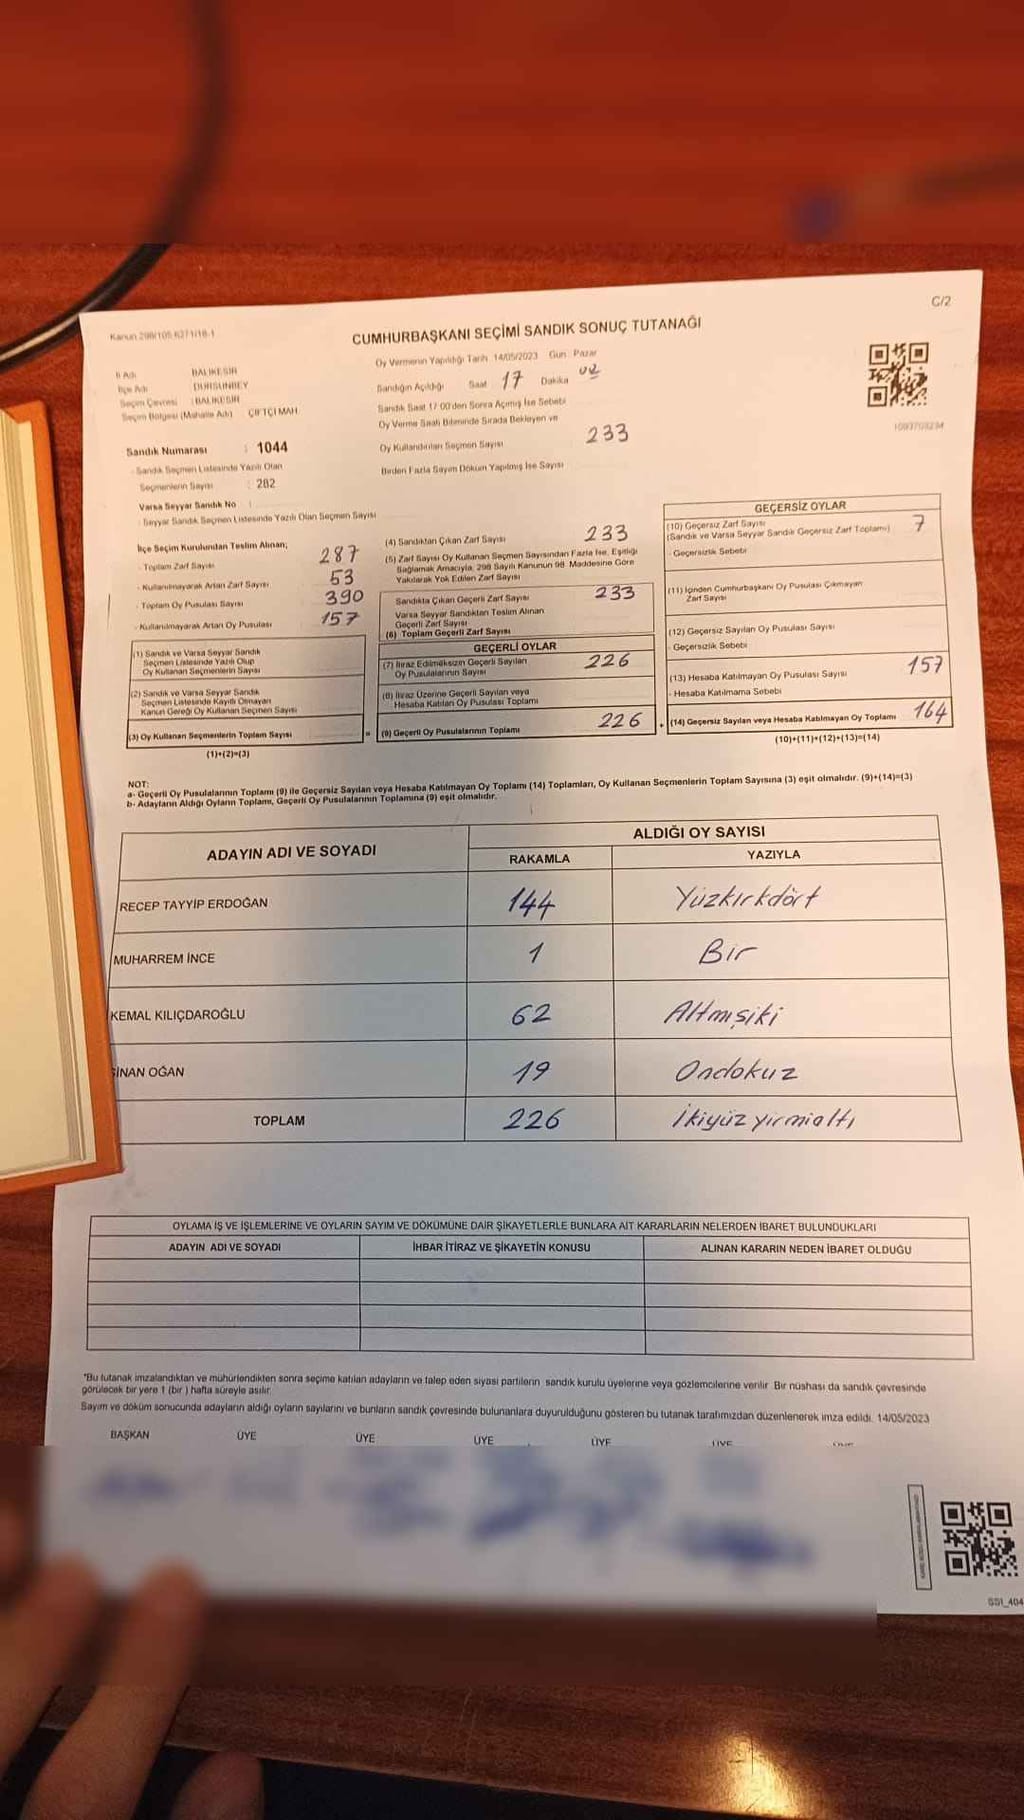 C/2
Kanun 298/105 6271/18-1
CUMHURBAŞKANI SEÇİMİ SANDIK SONUÇ TUTANAĞI
İl Adı BALIKESİR
İlçe Adı DURSUNBEY
Seçim Çevresi : BALIKESİR
Seçim Bölgesi (Mahalle Adı) ÇİFTÇİ MAH.
Sandık Numarası : 1044
- Sandık Seçmen Listesinde Yazılı Olan
Seçmenlerin Sayısı : 282
Varsa Seyyar Sandık No :
- Seyyar Sandık Seçmen Listesinde Yazılı Olan Seçmen Sayısı
Oy Vermenin Yapıldığı Tarih 14/05/2023 Gün : Pazar
Sandığın Açıldığı Saat 17 Dakika 02
Sandık Saat 17:00'den Sonra Açılmış İse Sebebi
Oy Verme Saati Bitiminde Sırada Bekleyen ve
Oy Kullandırılan Seçmen Sayısı 233
Birden Fazla Sayım Döküm Yapılmış İse Sayısı
İlçe Seçim Kurulundan Teslim Alınan;
- Toplam Zarf Sayısı 287
- Kullanılmayarak Artan Zarf Sayısı 53
- Toplam Oy Pusulası Sayısı 390
- Kullanılmayarak Artan Oy Pusulası 157
(1) Sandık ve Varsa Seyyar Sandık
Seçmen Listesinde Yazılı Olup
Oy Kullanan Seçmenlerin Sayısı
(2) Sandık ve Varsa Seyyar Sandık
Seçmen Listesinde Kayıtlı Olmayan
Kanun Gereği Oy Kullanan Seçmen Sayısı
(3) Oy Kullanan Seçmenlerin Toplam Sayısı
(1)+(2)=(3)
(4) Sandıktan Çıkan Zarf Sayısı 233
(5) Zarf Sayısı Oy Kullanan Seçmen Sayısından Fazla İse, Eşitliği
Sağlamak Amacıyla, 298 Sayılı Kanunun 98. Maddesine Göre
Yakılarak Yok Edilen Zarf Sayısı
Sandıkta Çıkan Geçerli Zarf Sayısı 233
Varsa Seyyar Sandıktan Teslim Alınan
Geçerli Zarf Sayısı
(6) Toplam Geçerli Zarf Sayısı
GEÇERLİ OYLAR
(7) İtiraz Edilmeksizin Geçerli Sayılan
Oy Pusulalarının Sayısı 226
(8) İtiraz Üzerine Geçerli Sayılan veya
Hesaba Katılan Oy Pusulası Toplamı
= (9) Geçerli Oy Pusulalarının Toplamı 226
GEÇERSİZ OYLAR
(10) Geçersiz Zarf Sayısı
(Sandık ve Varsa Seyyar Sandık Geçersiz Zarf Toplamı) 7
- Geçersizlik Sebebi
(11) İçinden Cumhurbaşkanı Oy Pusulası Çıkmayan
Zarf Sayısı
(12) Geçersiz Sayılan Oy Pusulası Sayısı
- Geçersizlik Sebebi
(13) Hesaba Katılmayan Oy Pusulası Sayısı 157
- Hesaba Katılmama Sebebi
+ (14) Geçersiz Sayılan veya Hesaba Katılmayan Oy Toplamı 164
(10)+(11)+(12)+(13)=(14)
NOT:
a- Geçerli Oy Pusulasının Toplamı (9) ile Geçersiz Sayılan veya Hesaba Katılmayan Oy Toplamı (14) Toplamları, Oy Kullanan Seçmenlerin Toplam Sayısına (3) eşit olmalıdır. (9)+(14)=(3)
b- Adayların Aldığı Oyların Toplamı, Geçerli Oy Pusulalarının Toplamına (9) eşit olmalıdır.
ADAYIN ADI VE SOYADI
ALDIĞI OY SAYISI
RAKAMLA YAZIYLA
RECEP TAYYİP ERDOĞAN 144 Yüzkırkdört
MUHARREM İNCE 1 Bir
KEMAL KILIÇDAROĞLU 62 Altmışiki
SİNAN OĞAN 19 Ondokuz
TOPLAM 226 İkiyüz yirmialtı
OYLAMA İŞ VE İŞLEMLERİNE VE OYLARIN SAYIM VE DÖKÜMÜNE DAİR ŞİKAYETLERLE BUNLARA AİT KARARLARIN NELERDEN İBARET BULUNDUKLARI
ADAYIN ADI VE SOYADI İHBAR İTİRAZ VE ŞİKAYETİN KONUSU ALINAN KARARIN NEDEN İBARET OLDUĞU
*Bu tutanak imzalandıktan ve mühürlendikten sonra seçime katılan adayların ve talep eden siyasi partilerin sandık kurulu üyelerine veya gözlemcilerine verilir. Bir nüshası da sandık çevresinde
görülecek bir yere 1 (bir) hafta süreyle asılır.
Sayım ve döküm sonucunda adayların aldığı oyların sayılarını ve bunların sandık çevresinde bulunanlara duyurulduğunu gösteren bu tutanak tarafımızdan düzenlenerek imza edildi. 14/05/2023
BAŞKAN ÜYE ÜYE ÜYE ÜYE ÜYE
SSI_404